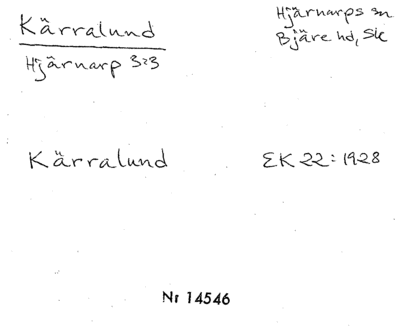 Kärralund
Hjärnarp 3:3
Hjärnarps sn
Bjäre hd, Sk
Kärralund
EK 22: 1928
Nr 14546